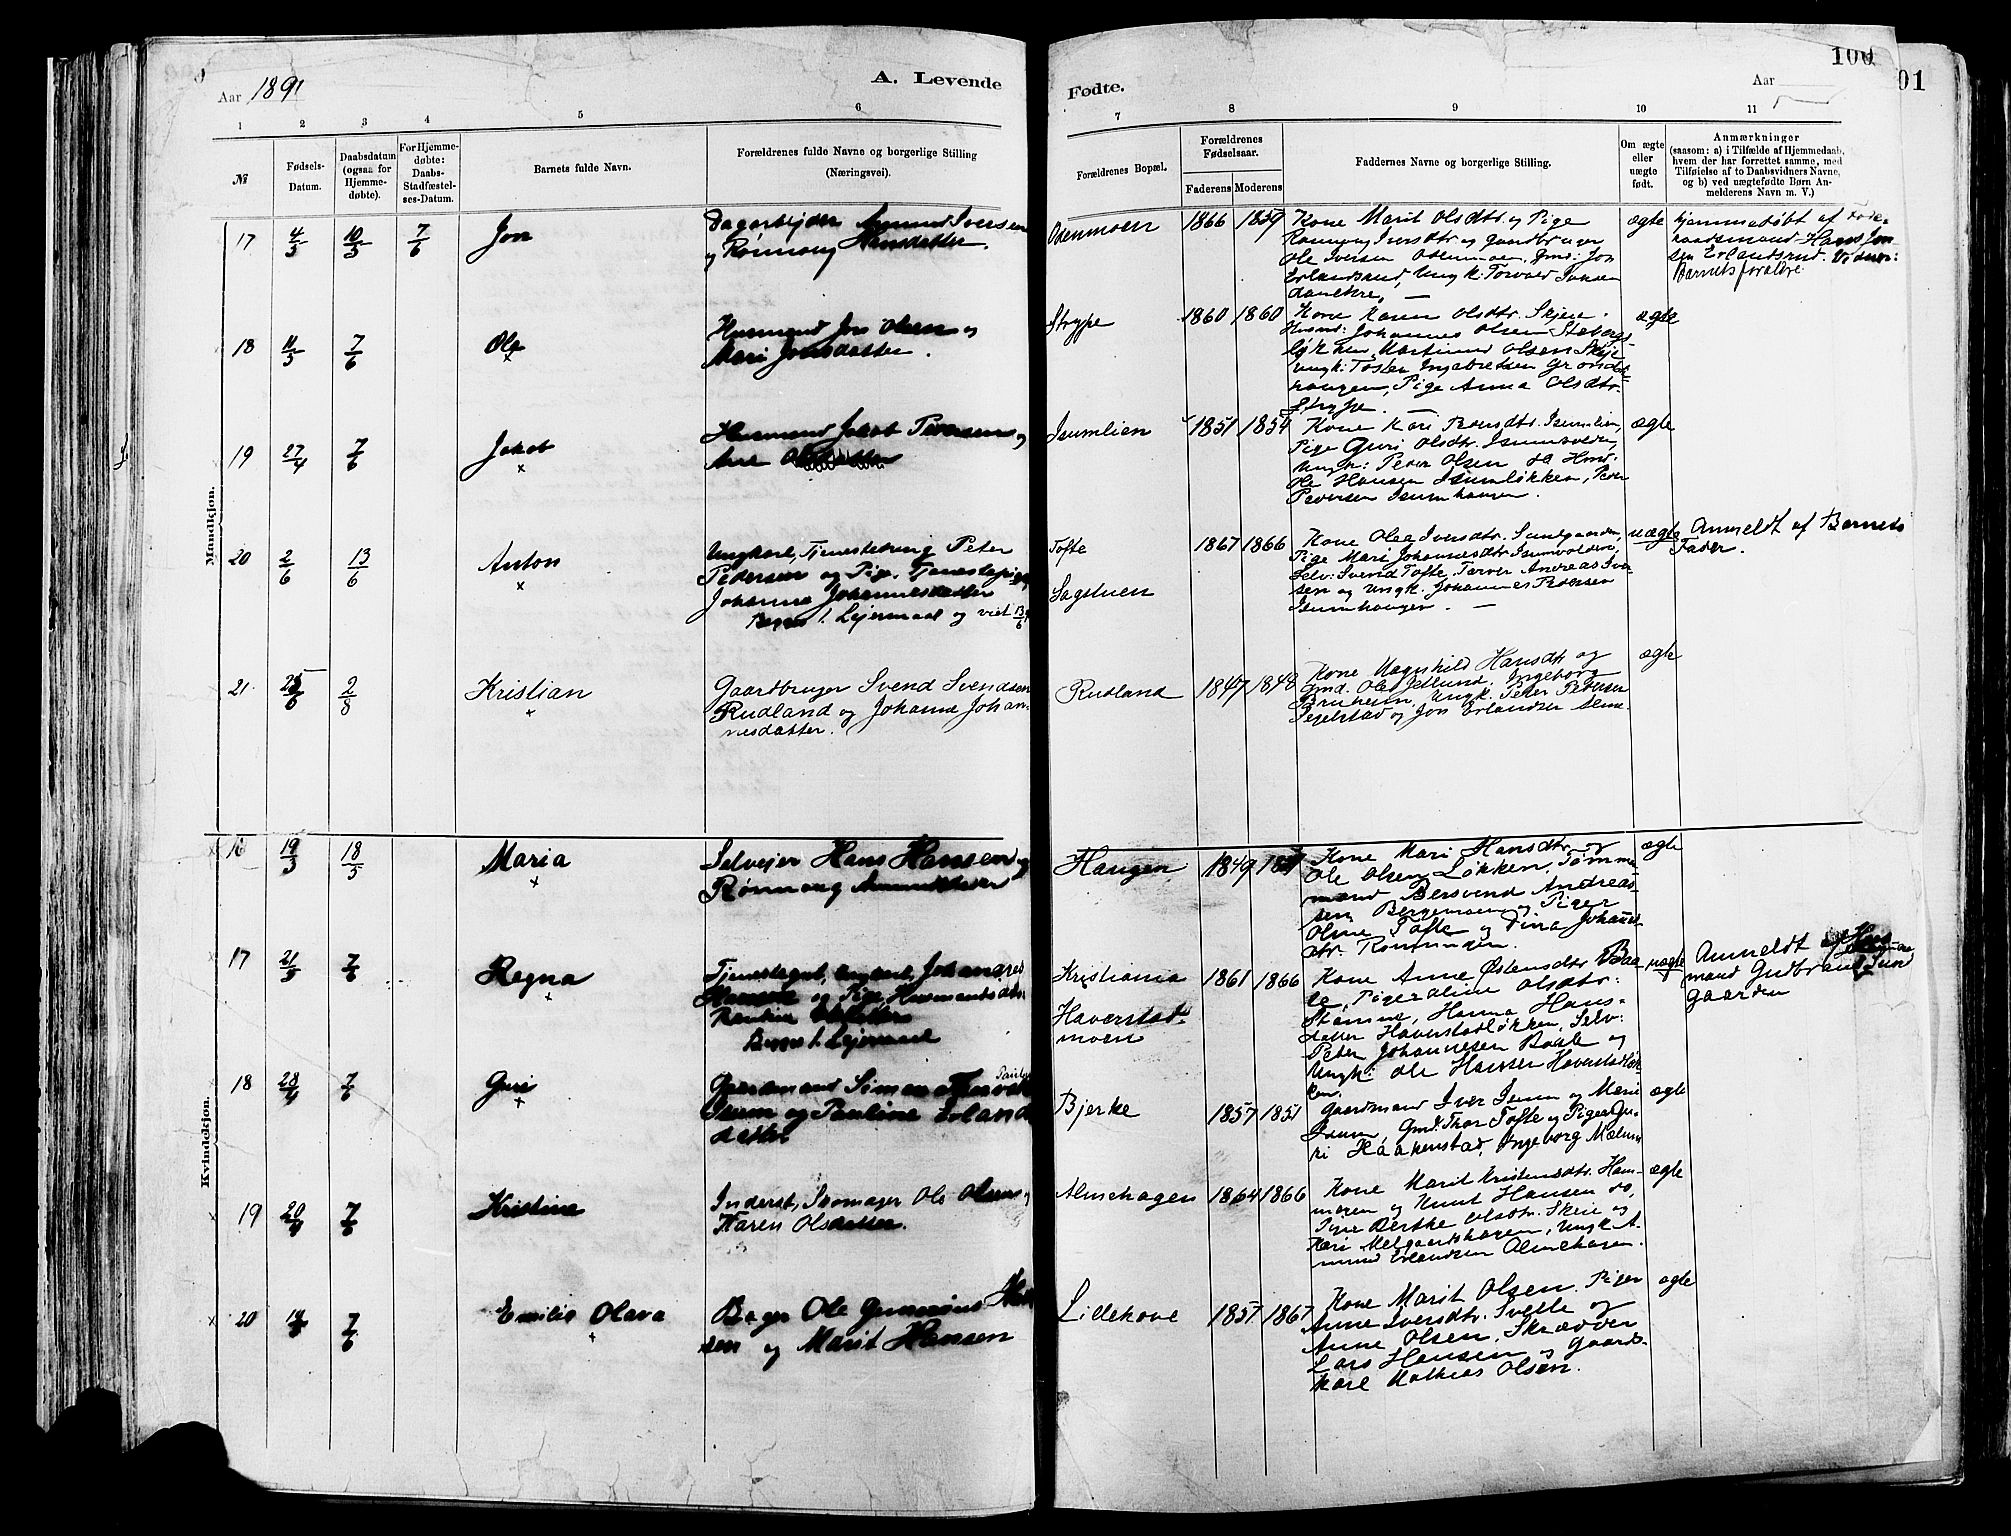 Aar 1891
A. Levende
Fødte.
Aar
100
01
1 2 3 4 5 6 7 8 9 10 11
№
Fødsels-
Datum.
Daabsdatum
(ogsaa for
Hjemme-
døbte).
For Hjemme-
døbte:
Daabs-
Stadfæstel-
ses-Datum.
Barnets fulde Navn.
Forældrenes fulde Navne og borgerlige Stilling
(Næringsvei).
Forældrenes Bopæl.
Forældrenes
Fødselsaar.
Faderens Moderens
Faddernes Navne og borgerlige Stilling.
Om ægte
eller
uægte
født.
Anmærkninger
(saasom: a) i Tilfælde af Hjemmedaab,
hvem der har forrettet samme, med
Tilføielse af to Daabsvidners Navne,
og b) ved uægtefødte Børn An-
melderens Navn m. V.)
Mandkjøn.
17 4/5 10/5 7/6 Jon
Dagarbejder Amund Iversen
og Rønnaug Hansdatter.
Odenmoen 1866 1859
Kone Marit Olsdtr. og Pige
Rønnaug Iversdtr. og Gaardbruger
Ole Iversen Odenmoen, Gmd: Jon
Erlandsrud, Ungk: Torvald
ægte
hjemmedøbt af
Hans Jon-
sen Erlandsrud. Vidner:
Barnets forældre.
18 11/5 7/6 Ole
Husmand Jon Olsen og
Mari Jonsdatter.
Strype 1860 1860
Kone Karen Olsdtr. Skjere.
Husmd: Johannes Olsen Steberg-
løkken, Martinus Olsen Skjæ
Ungk: Tosten Ingebretsen Grønds-
haugen, Pige Anna Olsdtr.
Strype.
ægte
19 27/4 7/6 Jakob
Husmand Jakob Pedersen og
Ane
Isumlien 1851 1854
Kone Kari Isumlien,
Pige Guri Olsdtr. Isumvolden,
Ungk: Peder Olsen do Hmd:
Ole Hansen Isumløkken, Peder
Pedersen Isumhaugen.
ægte
20 2/6 13/6 Anton
Ungkarl, Tjenestedreng Peter
Pedersen og Pige, Tjenestepige
Johanna Johannesdatter
Begges 1. Lejermaal og viet 13/6
Tofte
Sagstuen
1867 1866
Kone Olea Iversdtr. Sundgaarden,
Pige Mari Johannesdtr. Isumvolden,
Selv: Svend Tofte, Farver Andreas Iver-
sen og Ungk. Johannes Pedersen
Isumhaugen.
uægte
Anmeldt af Barnets
Fader.
21. 25/6 2/8 Kristian
Gaardbruger Svend Svendsen
Rudland og Johanne Johan-
nesdatter.
Rudland 1847 1848
Kone Magnhild Hansdtr og
Gmd. Ole Jetlund. Ingeborg
Bruheim, Ungk. Peter Pedersen
og Jon Erlandsen
ægte
Kvindekjøn.
16 19/3 18/5 Maria
Selvejer Hans Hansen og
Rønnaug Amundsdatter
Haugen 1849
Kone Mari Hansdtr. og
Ole Olsen Løkken, Tømmer-
mand Bersvend Andreas-
sen Bergemoen og Piger
Oline Tofte og Dina Johannes-
dtr. Rønningen.
ægte
17 21/3 7/6 Regna
Tjenestegut, Ungkarl, Johannes
Hansen og Pige Husmandsdat-
Begges 1. Lejermaal
Kristiania
Haverstad-
moen
1861 1866
Kone Anne Østensdtr. Baa-
le, Piger Oline Olsdtr.
Stamme, Hanna Hans-
datter Haverstadløkken, Selv:
Peter Johannesen Baale og
Ungk: Ole Hansen Haverstadløk-
ken.
uægte
Anmeldt af
mand Gudbrand Sun
gaarden
18 28/4 7/6 Guri
Gaardmand Simen
Isum og Pauline Erlands-
datter
Bjerke 1857 1851
Gaardmand Iver Isum og Mari
Isum, Gmd: Thor Tofte og Piger Gu-
ri Kaakenstad, Ingeborg Mælum
ægte
19 20/4 7/6 Kristine
Inderst, Skomager Ole Olsen og
Karen Olsdatter.
Almehagen 1864 1866
Kone Marit Kristensdtr. Ham-
maren og Knut Hansen do,
Piger Berthe Olsdtr. Skjæ og
Kari Melgaardshagen, Ungk. A-
mund Erlandsen Almehagen.
ægte
20 7/6 Emilie Olava
Bager Ole Gunerius Han-
sen og Marit Hansen
Lillehove 1857 1867
Kone Marit Olsen. Piger
Anne Iversdtr. Svelle og
Anne Olsen, Skrædder
Lars Hansen og Gaard-
karl Mathias Olsen.
ægte